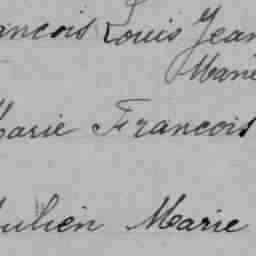 ancois Louis Jean
Marie
arie Francois
ulien Marie